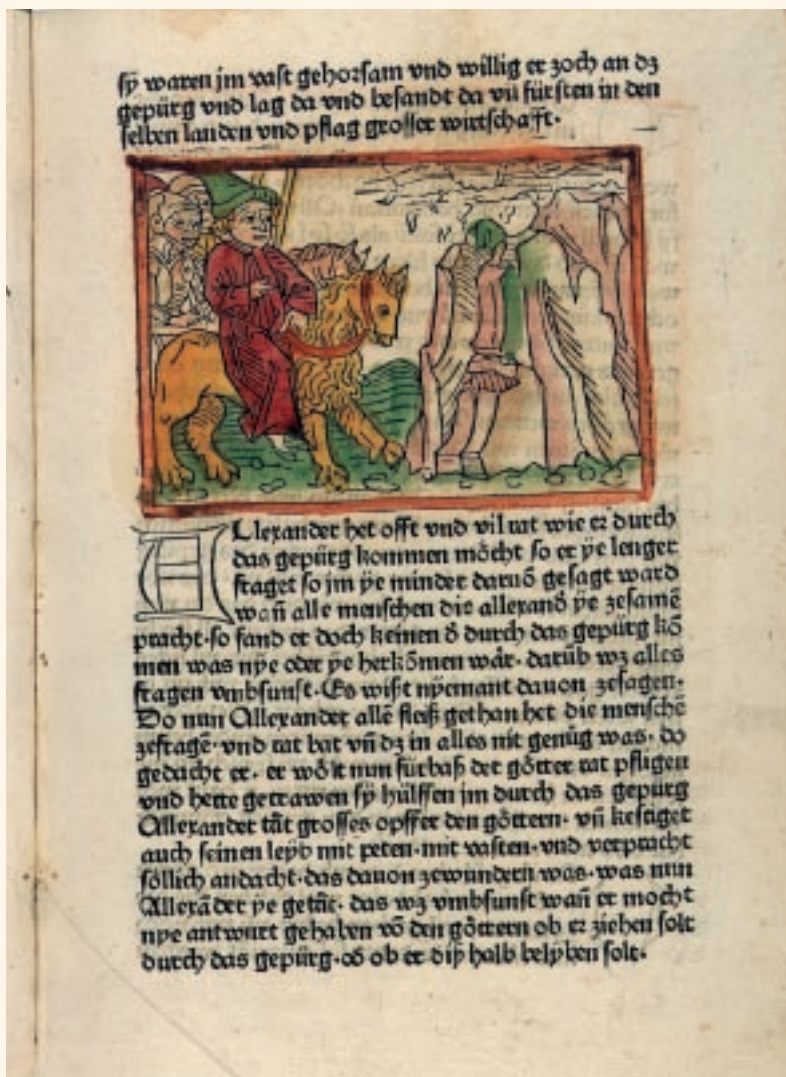 sÿ waren jm vast gehorsam vnd willig er zoch an dz
gepürg vnd lag da vnd besandt da vil fürsten in den
selben landen vnd pflag grosser wirtschafft.
ALlexander het offt vnd vil rat wie er durch
das gepürg kommen möcht so er ÿe lenger
fraget so jm ÿe minder daruō gesagt ward
wañ alle menschen die allexand ÿe zesamē
pracht·so fand er doch keinen d̄ durch das gepürg kō
men was nÿe oder ÿe herkōmen wär· darūb wz alles
fragen vmbsunst·Es wißt nÿemant dauon zesagen·
Do nun Allexander allē fleiß gethan het die menschē
zefragē·vnd rat bat vñ dz in alles nit genůg was· do
gedacht er· er wölt nun fürbaß der götter rat pflegen
vnd hette getrawen sÿ hülffen jm durch das gepürg
Allexander tät grosses opffer den göttern· vñ kestiget
auch seinen leÿb mit peten·mit vasten·vnd verpracht
söllich andacht·das dauon zewundern was·was nun
Allexāder ÿe getät· das wz vmbsunst wañ er mocht
nÿe antwurt gehaben vō den göttern ob er ziehen solt
durch das gepürg·od ob er diß halb belÿben solt·